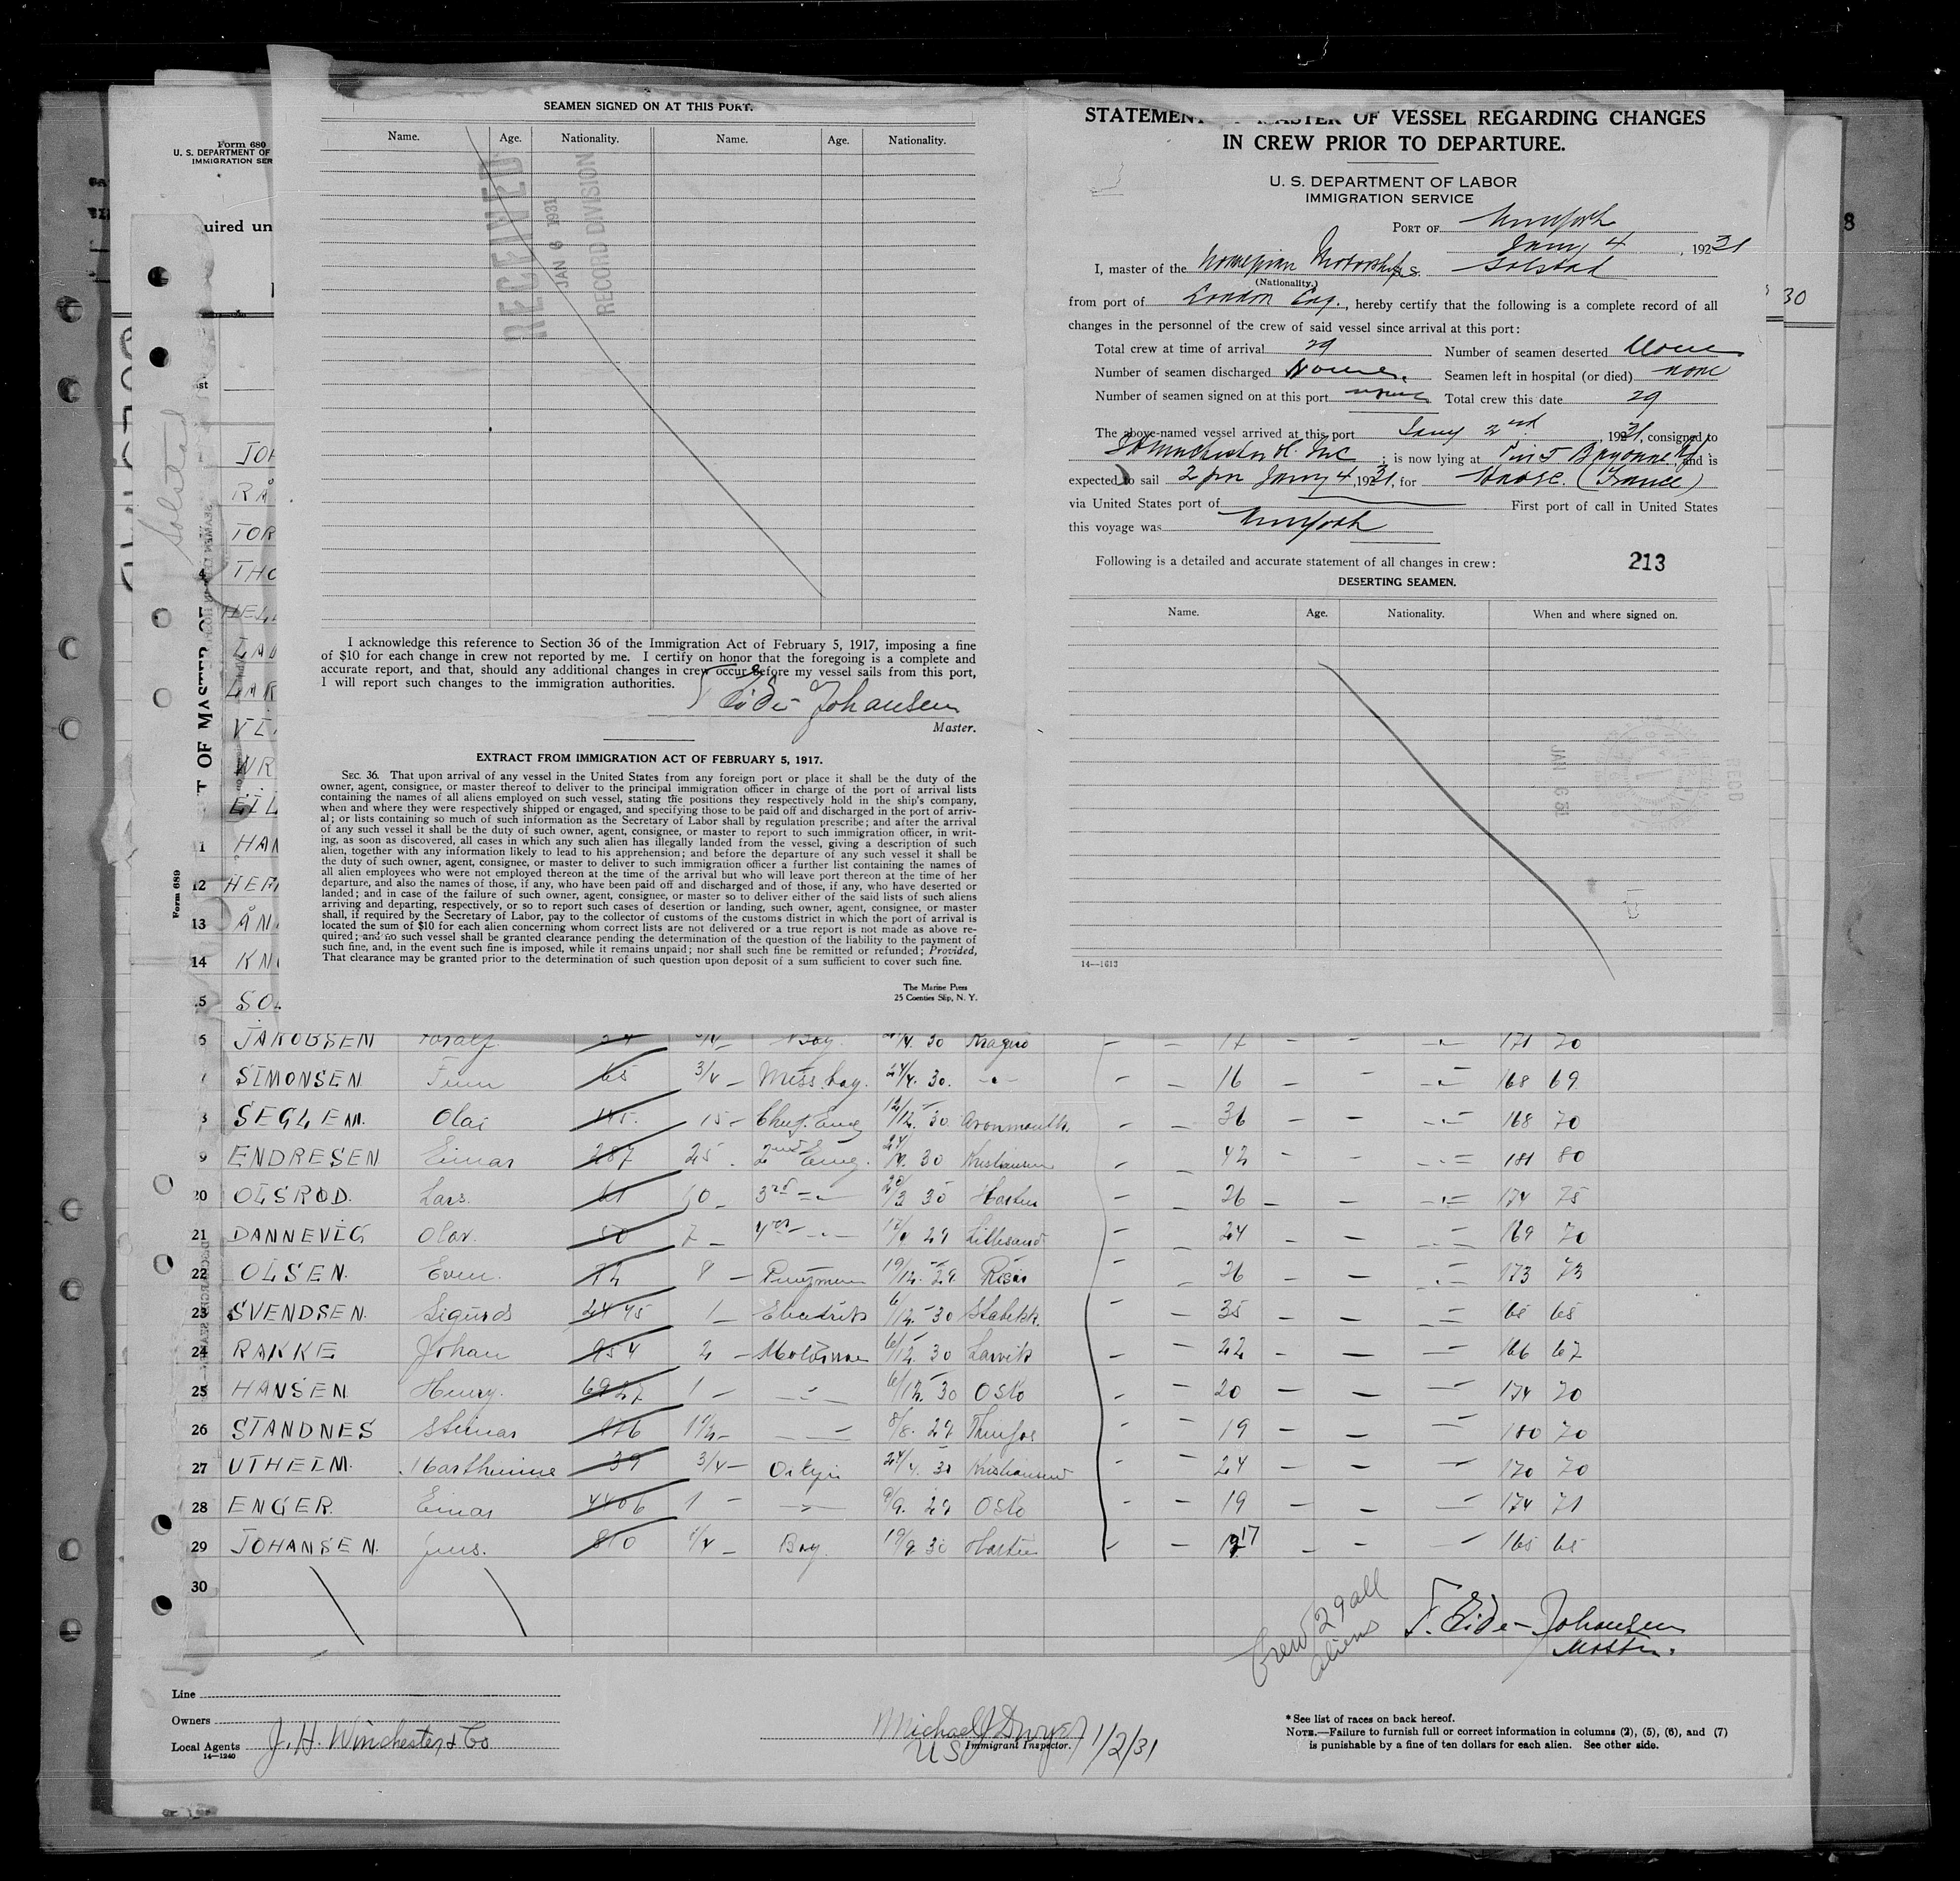 SEAMEN SIGNED ON AT THIS PORT.
Name. Age. Nationality. Name. Age. Nationality.
RECEIVED
JAN 6 1931
RECORD DIVISION
I acknowledge this reference to Section 36 of the Immigration Act of February 5, 1917, imposing a fine
of $10 for each change in crew not reported by me. I certify on honor that the foregoing is a complete and
accurate report, and that, should any additional changes in crew occur before my vessel sails from this port,
I will report such changes to the immigration authorities.
Eide-Johansen
Master.
EXTRACT FROM IMMIGRATION ACT OF FEBRUARY 5, 1917.
SEC. 36. That upon arrival of any vessel in the United States from any foreign port or place it shall be the duty of the
owner, agent, consignee, or master thereof to deliver to the principal immigration officer in charge of the port of arrival lists
containing the names of all aliens employed on such vessel, stating the positions they respectively hold in the ship's company,
when and where they were respectively shipped or engaged, and specifying those to be paid off and discharged in the port of arriv-
al; or lists containing so much of such information as the Secretary of Labor shall by regulation prescribe; and after the arrival
of any such vessel it shall be the duty of such owner, agent, consignee, or master to report to such immigration officer, in writ-
ing, as soon as discovered, all cases in which any such alien has illegally landed from the vessel, giving a description of such
alien, together with any information likely to lead to his apprehension; and before the departure of any such vessel it shall be
the duty of such owner, agent, consignee, or master to deliver to such immigration officer a further list containing the names of
all alien employees who were not employed thereon at the time of the arrival but who will leave port thereon at the time of her
departure, and also the names of those, if any, who have been paid off and discharged and of those, if any, who have deserted or
landed; and in case of the failure of such owner, agent, consignee, or master so to deliver either of the said lists of such aliens
arriving and departing, respectively, or so to report such cases of desertion or landing, such owner, agent, consignee, or master
shall, if required by the Secretary of Labor, pay to the collector of customs of the customs district in which the port of arrival is
located the sum of $10 for each alien concerning whom correct lists are not delivered or a true report is not made as above re-
quired; and no such vessel shall be granted clearance pending the determination of the question of the liability to the payment of
such fine, and, in the event such fine is imposed, while it remains unpaid; nor shall such fine be remitted or refunded; Provided,
That clearance may be granted prior to the determination of such question upon deposit of a sum sufficient to cover such fine.
The Marine Press
25 Coenties Slip, N. Y.
STATEMENT MASTER OF VESSEL REGARDING CHANGES
IN CREW PRIOR TO DEPARTURE.
U. S. DEPARTMENT OF LABOR
IMMIGRATION SERVICE
PORT OF New York
Jany 4, 1931
I, master of the Norwegian Motorship S. S. Solstad
(Nationality.)
from port of London Eng., hereby certify that the following is a complete record of all
changes in the personnel of the crew of said vessel since arrival at this port:
Total crew at time of arrival 29 Number of seamen deserted None
Number of seamen discharged None. Seamen left in hospital (or died) none
Number of seamen signed on at this port none Total crew this date 29
The above-named vessel arrived at this port Jany 2nd, 1931, consigned to
; is now lying at Bayonne NJ, and is
expected to sail 2 pm Jany 4, 1931, for Havre. (France)
via United States port of First port of call in United States
this voyage was New York
Following is a detailed and accurate statement of all changes in crew: 213
DESERTING SEAMEN.
Name. Age. Nationality. When and where signed on.
JAN 6 31
REC'D
14—1613
Form 680
U. S. DEPARTMENT OF
IMMIGRATION SER
uired un
30
Solstad
T OF MASTER OF
Form 689
JOH
RÅ
TOR
4 THO
HEL
LAU
LAR
VI
WR
EIL
11 HAN
12 HER
13 ÅN
14 KN
5 SOL
6 JAKOBSEN 24 Boy. 30 Kragerø 17 171 70
SIMONSEN Finn 65 3/4 – Mess boy. 24/4. 30. 16 168 69
SEGLEM. Olai 145. 15 – Chief. Eng 12/12. 30. Avonmouth. 36 168 70
9 ENDRESEN Einar 287 25. 2nd Eng. 24/9. 30 Kristiansund 42 181 80
20 OLSRØD. Lars. 61 3rd 20/3 30 Horten 26 174 75
21 DANNEVIG Olav. 50 7 – 29 Lillesand 24 169 70
22 OLSEN. Even. 8 – Pumpman 19/12. 29 Risør 26 173 73
23 SVENDSEN. Sigurd 2445 1 – Electrik 6/12. 30 Stabekk. 35 65
24 RAKKE Johan 954 2 – Motorman 6/12. 30 Larvik 22 166 67
25 HANSEN Henry. 6927 1 – 6/12. 30 Oslo 20 174 70
26 STANDNES Steinar 1 1/2 – 8/8. 29 19 180 70
27 UTHEIM. Marthinius 39 3/4 – 24/4. 30 Kristiansund 24 170 70
28 ENGER. Einar 4406 1 – 9/9. 29 Oslo 19 174 71
29 JOHANSEN. Jens. 810 Boy. 19/9 30 Horten 17 165 65
30
Crew 29 all
aliens
F. Eide-Johansen
Master.
Line
Owners
Local Agents J. H. Winchester & Co
14—1240
Michael J Dwyer 1/2/31
USI Immigrant Inspector.
* See list of races on back hereof.
NOTE.—Failure to furnish full or correct information in columns (2), (5), (6), and (7)
is punishable by a fine of ten dollars for each alien. See other side.